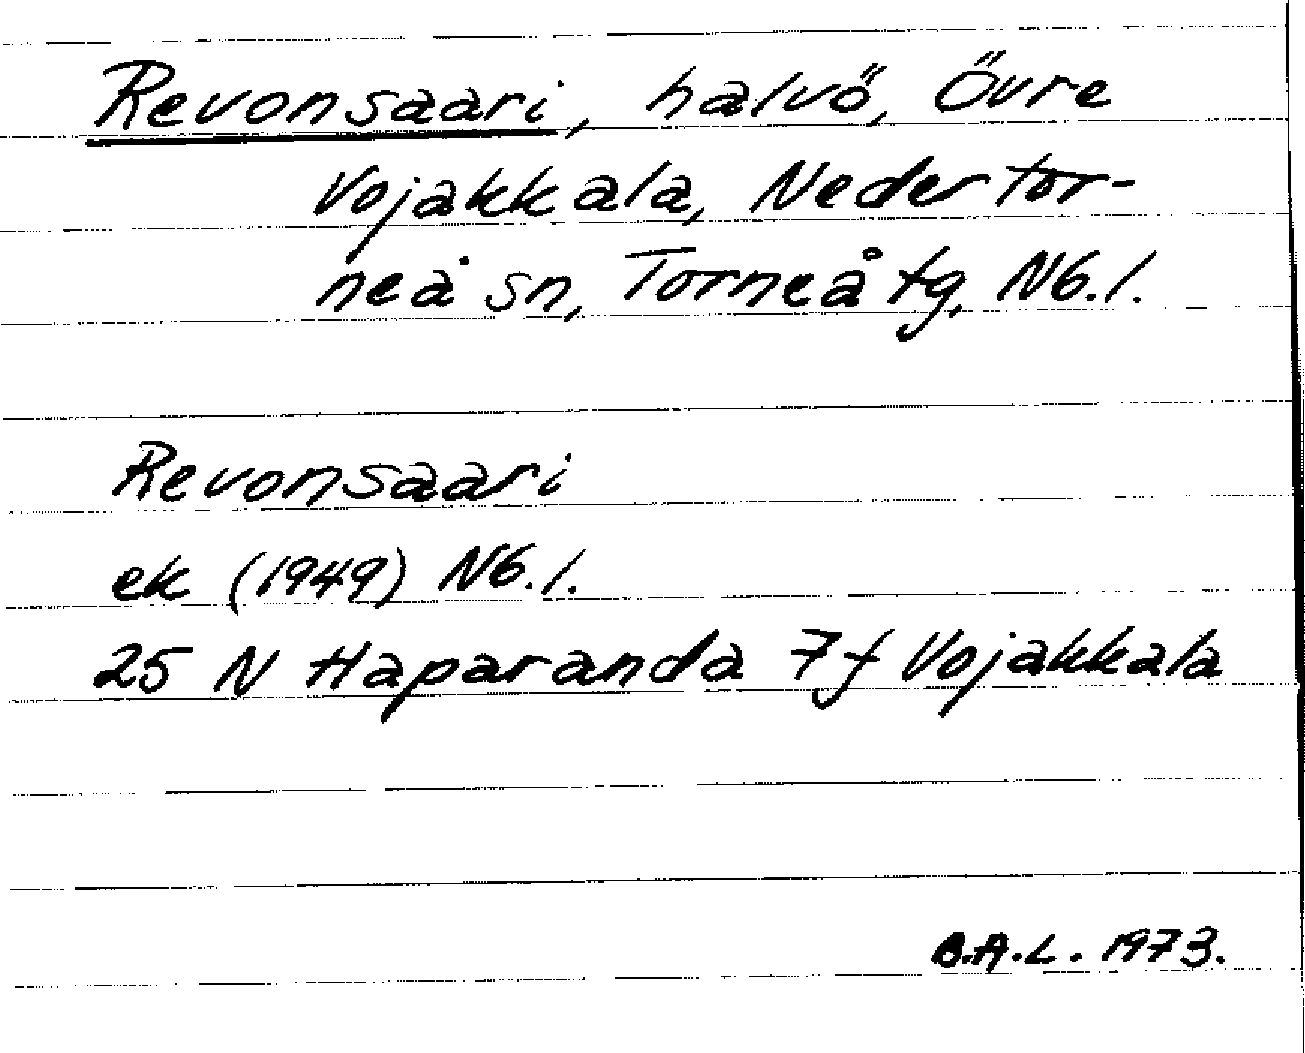 Revonsaari, halvö, Övre
Vojakkala, Nedertor-
neå sn, Torneå tg, Nb.l.
Revonsaari
ek (1949) Nb.l.
25 N Haparanda 7f Vojakkala
B.A.L. 1973.